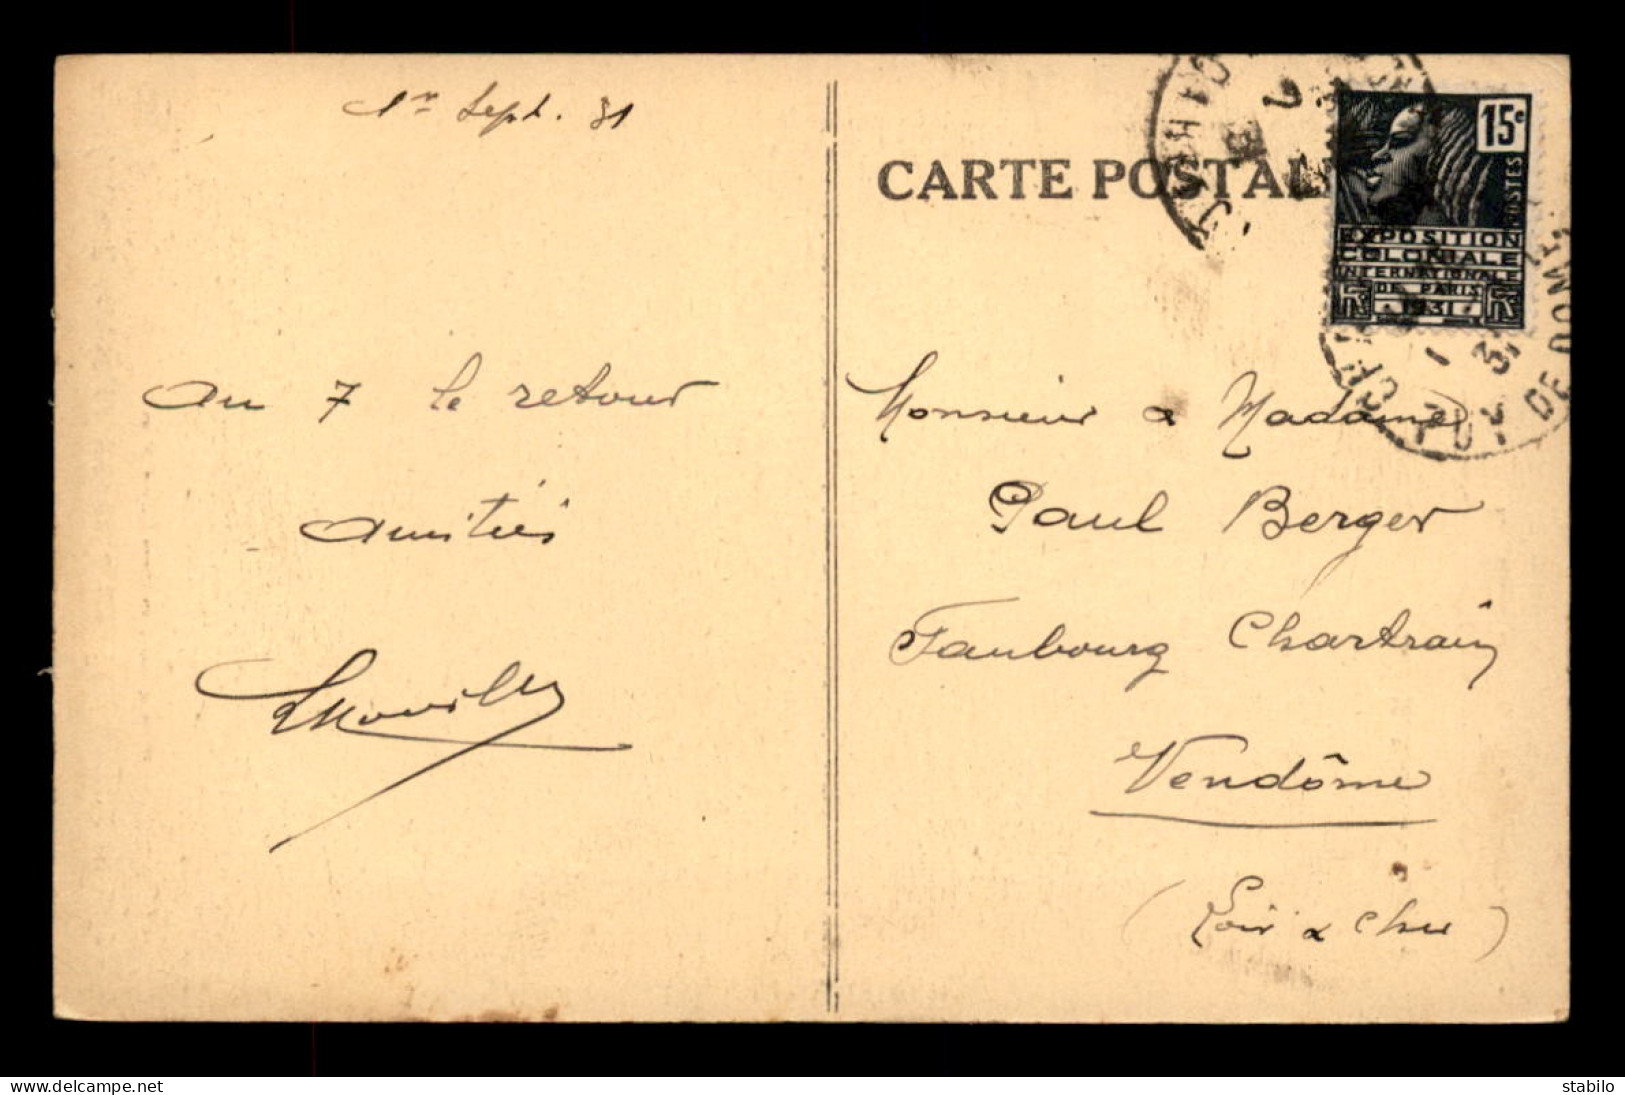 1er Sept. 31
CARTE POSTALE
15c
POSTES
EXPOSITION
COLONIALE
INTERNATIONALE
DE PARIS
1931
1
31
PUY DE DOME
au 7 le retour
amitiés
Monsieur & Madame
Paul Berger
Faubourg Chartrain
Vendôme
(Loir & Cher)
www.delcampe.net
stabilo